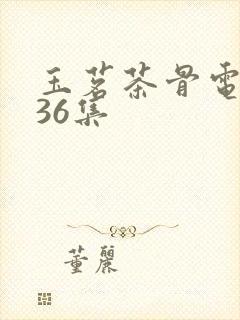 玉茗茶骨電
36集
董麗